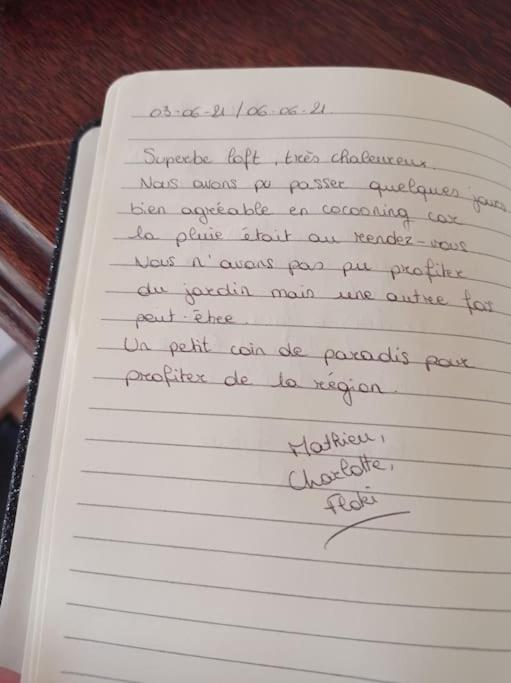 03-06-21 / 06-06-21
Superbe loft, très chaleureux.
Nous avons pu passer quelques jours
bien agréable en cocooning car
la pluie était au rendez-vous
Nous n'avons pas pu profiter
du jardin mais une autre fois
peut-être.
Un petit coin de paradis pour
profiter de la région.
Mathieu,
Charlotte,
Floki